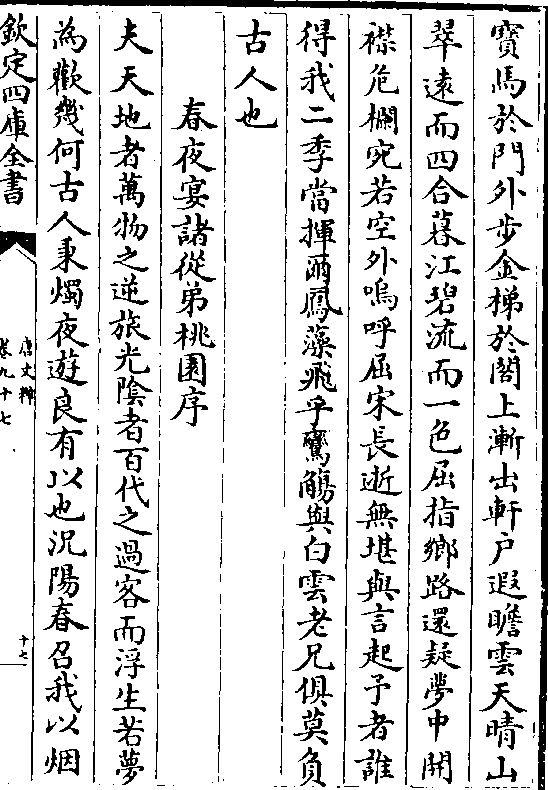 寶馬於門外步金梯於閣上漸出軒户遐瞻雲天晴山
翠遠而四合暮江碧流而一色屈指鄉路還疑夢中開
襟危欄宛若空外嗚呼屈宋長逝無堪與言起予者誰
得我二季當揮爾鳳藻飛乎鸞觴與白雲老兄俱莫負
古人也
春夜宴諸從弟桃園序
夫天地者萬物之逆旅光陰者百代之過客而浮生若夢
為歡幾何古人秉燭夜遊良有以也況陽春召我以烟
欽定四庫全書
唐文粹
卷九十七
十七